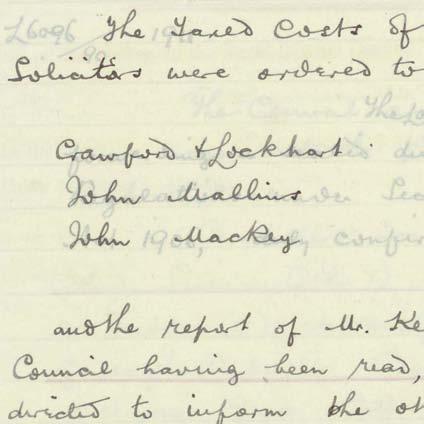 The Taxed Costs of
Solicitors were ordered to
Crawford & Lockhart.
John Mallins
John Mackey
and the report of Mr. Ke
Council having been read,
directed to inform the ot